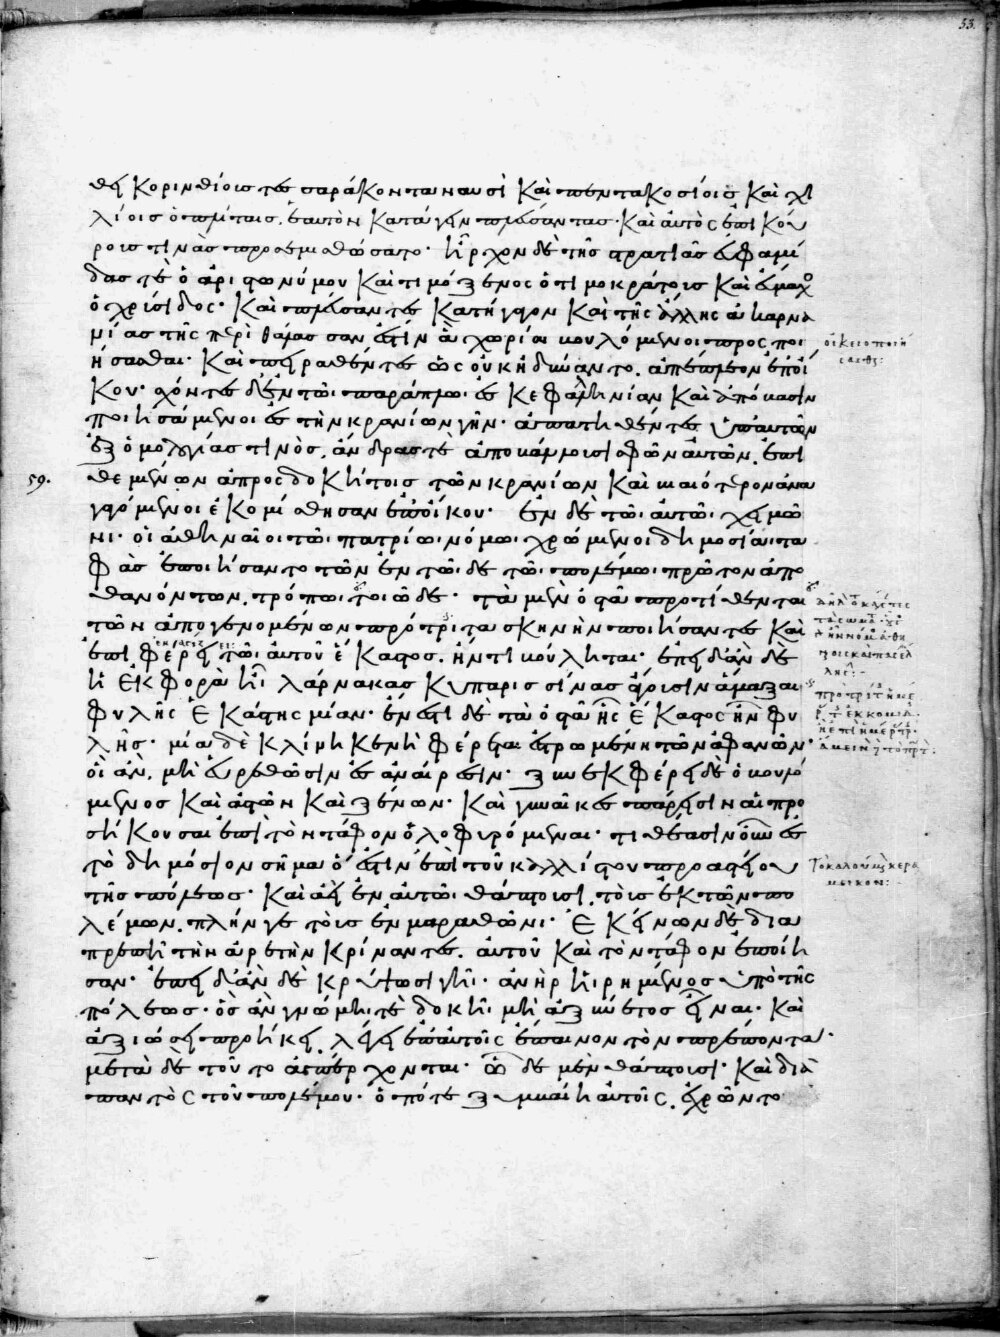 θει κορινθίους τεσσαράκοντα ναυσὶ καὶ πεντακοσίοις καὶ χι
λίοις ὁπλίταις ἑαυτὸν κατάγειν πλεύσαντας· καὶ αὐτὸς ἐπικού
ρους τινὰς προσεμισθώσατο· ἦρχον δὲ τῆς στρατιᾶς εὐφαμί
δας τὲ ὁ ἀριστωνύμου καὶ τιμόξενος ὁ τιμοκράτους καὶ εὔμαχος
ὁ χρύσιδος· καὶ πλεύσαντες κατήγαγον καὶ τῆς ἄλλης ἀκαρνα
νίας τῆς περὶ θάλασσαν ἔστιν ἃ χωρία βουλόμενοι προσποι
ήσασθαι· καὶ πειραθέντες ὡς οὐκ ἠδύναντο. ἀπέπλεον ἐπ' οἴ
κου· σχόντες δ' ἐν τῶι παράπλωι ἐς κεφαλληνίαν καὶ ἀπόβασιν
ποιησάμενοι ἐς τὴν κρανίων γῆν· ἀπατηθέντες ὑπ' αὐτῶν
ἐξ ὁμολογίας τινὸς. ἄνδρας τὲ ἀποβάλλουσι σφῶν αὐτῶν. ἐπι
59. θεμένων ἀπροσδοκήτοις τῶν κρανίων καὶ βιαιότερον ἀναγα
γόμενοι ἐκομίσθησαν ἐπ' οἴκου· ἐν δὲ τῶι αὐτῶι χειμῶ
νι· οἱ ἀθηναῖοι τῶι πατρίωι νόμωι χρώμενοι δημοσίαι τα
φὰς ἐποιήσαντο τῶν ἐν τῶιδε τῶι πολέμωι πρῶτον ἀπο
θανόντων. τρόπωι τοιῶδε· τὰ μὲν ὀστᾶ προτίθενται
τῶν ἀπογενομένων πρότριτα σκηνὴν ποιήσαντες καὶ
ἐπιφέρει τῶι αὐτοῦ ἕκαστος. ἤν τι βούληται· ἐπειδὰν δὲ
ἡ ἐκφορὰ ἦι λάρνακας κυπαρισσίνας ἄγουσιν ἅμαξαι
φυλῆς ἑκάστης μίαν· ἔνεστι δὲ τὰ ὀστᾶ ἧς ἕκαστος ἦν φυ
λῆς· μία δὲ κλίνη κενὴ φέρεται ἐστρωμένη τῶν ἀφανῶν·
οἳ ἂν. μὴ εὑρεθῶσιν ἐς ἀναίρεσιν· ξυνεκφέρει δὲ ὁ βουλό
μενος καὶ ἀστῶν καὶ ξένων· καὶ γυναῖκες πάρεισιν αἱ προ
σήκουσαι ἐπὶ τὸν τάφον ὀλοφυρόμεναι· τιθέασιν οὖν ἐς
τὸ δημόσιον σῆμα ὅ ἐστιν ἐπὶ τοῦ καλλίστου προαστείου
τῆς πόλεως· καὶ ἀεὶ ἐν αὐτῶι θάπτουσι. τοὺς ἐκ τῶν πο
λέμων. πλήν γε τοὺς ἐν μαραθῶνι· ἐκείνων δὲ δια
πρεπῆ τὴν ἀρετὴν κρίναντες. αὐτοῦ καὶ τὸν τάφον ἐποίη
σαν· ἐπειδὰν δὲ κρύψωσι γῆι· ἀνὴρ ἡιρημένος ὑπὸ τῆς
πόλεως· ὃς ἂν γνώμηι τὲ δοκῆι μὴ ἀξύνετος εἶναι· καὶ
ἀξιώσει προήκει. λέγει ἐπ' αὐτοῖς ἔπαινον τὸν πρέποντα·
μετὰ δὲ τοῦτο ἀπέρχονται· ὧδε μὲν θάπτουσι· καὶ διὰ
παντὸς τοῦ πολέμου· ὁπότε ξυμβαίη αὐτοῖς. ἐχρῶντο
53.
οἰκειοποιή
σασθαι:
τὸ καλούμενον κερα
μεικόν: